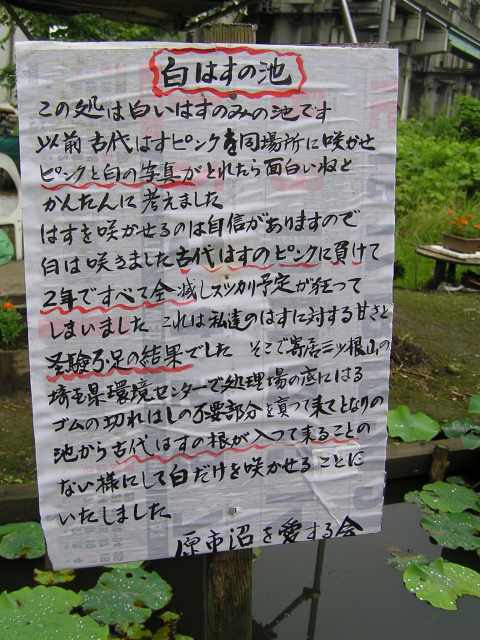 白はすの池
この処は白いはすのみの池です
以前古代はすピンクを同場所に咲かせ
ピンクと白の写真がとれたら面白いねと
かんたんに考えました
はすを咲かせるのは自信がありますので
白は咲きました古代はすのピンクに負けて
2年ですべて全滅しスッカリ予定が狂って
しまいました これは私達のはすに対する甘さと
経験不足の結果でした そこで寄居三ツ根山の
埼玉県環境センターで処理場の底にはる
ゴムの切れはしの不要部分を貰って来てとなりの
池から古代はすの根が入って来ることの
ない様にして白だけを咲かせることに
いたしました
原市沼を愛する会